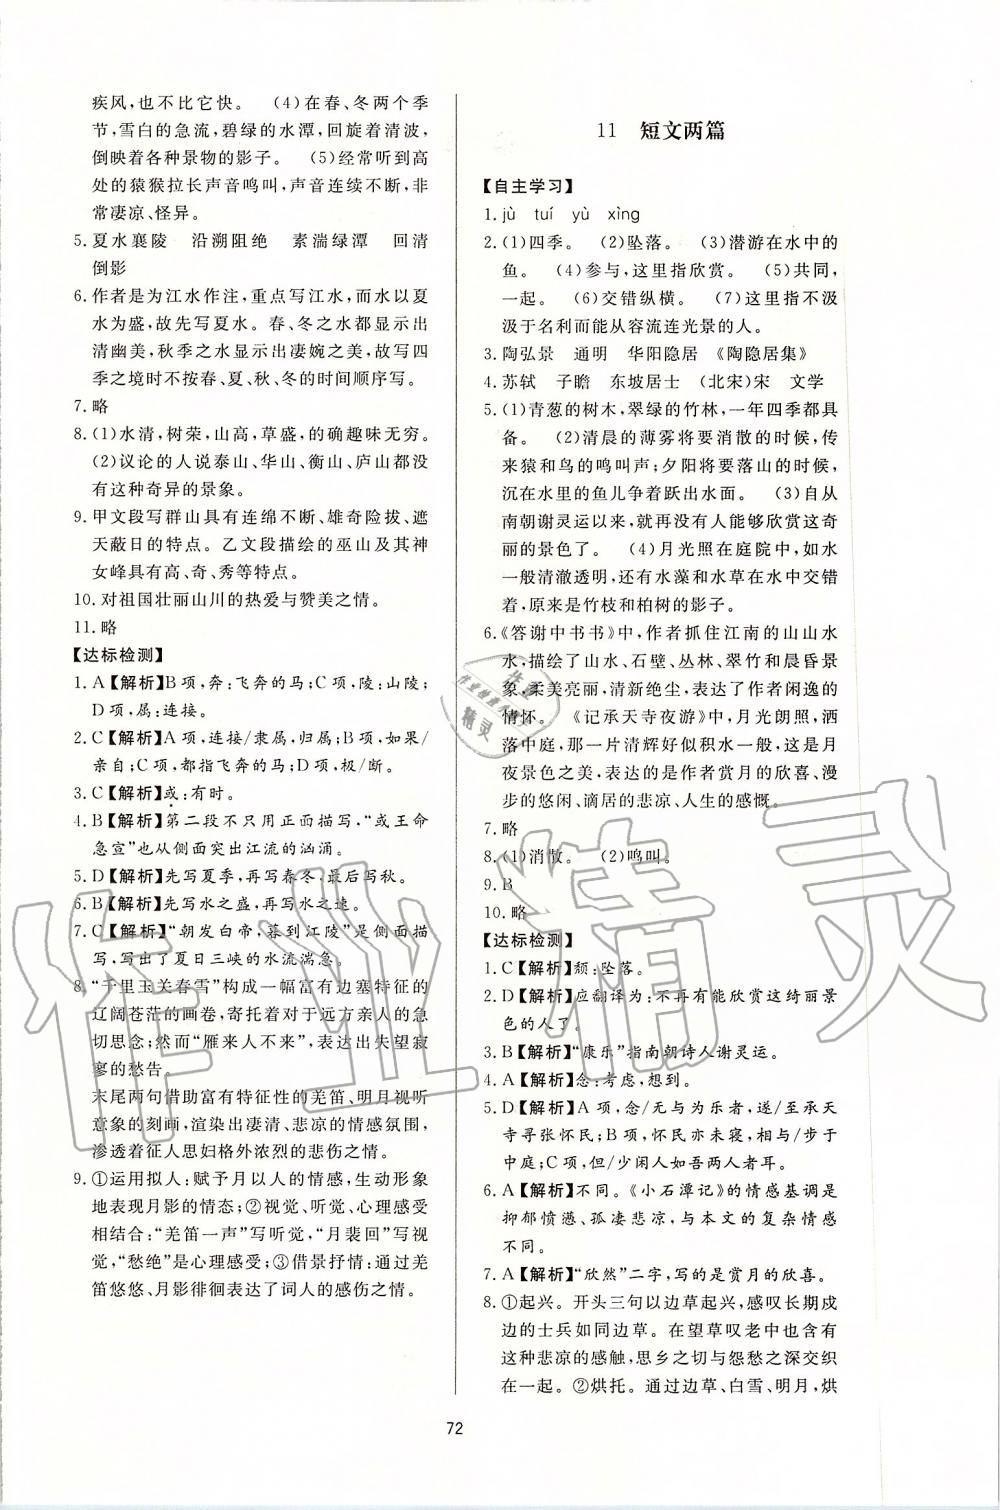 疾风,也不比它快。 (4)在春、冬两个季
节,雪白的急流,碧绿的水潭,回旋着清波,
倒映着各种景物的影子。 (5)经常听到高
处的猿猴拉长声音鸣叫,声音连续不断,非
常凄凉、怪异。
5. 夏水襄陵 沿溯阻绝 素湍绿潭 回清
倒影
6. 作者是为江水作注,重点写江水,而水以夏
水为盛,故先写夏水。春、冬之水都显示出
清幽美,秋季之水显示出凄婉之美,故写四
季之境时不按春、夏、秋、冬的时间顺序写。
7. 略
8. (1)水清,树荣,山高,草盛,的确趣味无穷。
(2)议论的人说泰山、华山、衡山、庐山都没
有这种奇异的景象。
9. 甲文段写群山具有连绵不断、雄奇险拔、遮
天蔽日的特点。乙文段描绘的巫山及其神
女峰具有高、奇、秀等特点。
10. 对祖国壮丽山川的热爱与赞美之情。
11. 略
【达标检测】
1. A【解析】B项,奔:飞奔的马;C项,陵:山陵;
D项,属:连接。
2. C【解析】A项,连接/隶属,归属;B项,如果/
亲自;C项,都指飞奔的马;D项,极/断。
3. C【解析】或:有时。
4. B【解析】第二段不只用正面描写,“或王命
急宣”也从侧面突出江流的汹涌。
5. D【解析】先写夏季,再写春冬,最后写秋。
6. B【解析】先写水之盛,再写水之速。
7. C【解析】“朝发白帝,暮到江陵”是侧面描
写,写出了夏日三峡的水流湍急。
8. “千里玉关春雪”构成一幅富有边塞特征的
辽阔苍茫的画卷,寄托着对于远方亲人的急
切思念;然而“雁来人不来”,表达出失望寂
寥的愁告。
末尾两句借助富有特征性的羌笛、明月视听
意象的刻画,渲染出凄清、悲凉的情感氛围,
渗透着征人思妇格外浓烈的悲伤之情。
9. ①运用拟人:赋予月以人的情感,生动形象
地表现月影的情态;②视觉、听觉、心理感受
相结合:“羌笛一声”写听觉,“月裴回”写视
觉,“愁绝”是心理感受;③借景抒情:通过羌
笛悠悠、月影徘徊表达了词人的感伤之情。
11 短文两篇
【自主学习】
1. jù tuí yù xìng
2. (1)四季。 (2)坠落。 (3)潜游在水中的
鱼。 (4)参与,这里指欣赏。 (5)共同,
一起。 (6)交错纵横。 (7)这里指不汲
汲于名利而能从容流连光景的人。
3. 陶弘景 通明 华阳隐居 《陶隐居集》
4. 苏轼 子瞻 东坡居士 (北宋)宋 文学
5. (1)青葱的树木,翠绿的竹林,一年四季都具
备。 (2)清晨的薄雾将要消散的时候,传
来猿和鸟的鸣叫声;夕阳将要落山的时候,
沉在水里的鱼儿争着跃出水面。 (3)自从
南朝谢灵运以来,就再没有人能够欣赏这奇
丽的景色了。 (4)月光照在庭院中,如水
一般清澈透明,还有水藻和水草在水中交错
着,原来是竹枝和柏树的影子。
6. 《答谢中书书》中,作者抓住江南的山山水
水,描绘了山水、石壁、丛林、翠竹和晨昏景
象,柔美亮丽,清新绝尘,表达了作者闲逸的
情怀。 《记承天寺夜游》中,月光朗照,洒
落中庭,那一片清辉好似积水一般,这是月
夜景色之美,表达的是作者赏月的欣喜、漫
步的悠闲、谪居的悲凉、人生的感慨。
7. 略
8. (1)消散。 (2)鸣叫。
9. B
10. 略
【达标检测】
1. C【解析】颓:坠落。
2. D【解析】应翻译为:不再有能欣赏这绮丽景
色的人了。
3. B【解析】“康乐”指南朝诗人谢灵运。
4. A【解析】念:考虑,想到。
5. D【解析】A项,念/无与为乐者,遂/至承天
寺寻张怀民;B项,怀民亦未寝,相与/步于
中庭;C项,但/少闲人如吾两人者耳。
6. A【解析】不同。《小石潭记》的情感基调是
抑郁愤懑、孤凄悲凉,与本文的复杂情感
不同。
7. A【解析】“欣然”二字,写的是赏月的欣喜。
8. ①起兴。开头三句以边草起兴,感叹长期戍
边的士兵如同边草。在望草叹老中也含有
这种悲凉的感触,思乡之切与怨愁之深交织
在一起。②烘托。通过边草、白雪、明月,烘
72
作业精灵